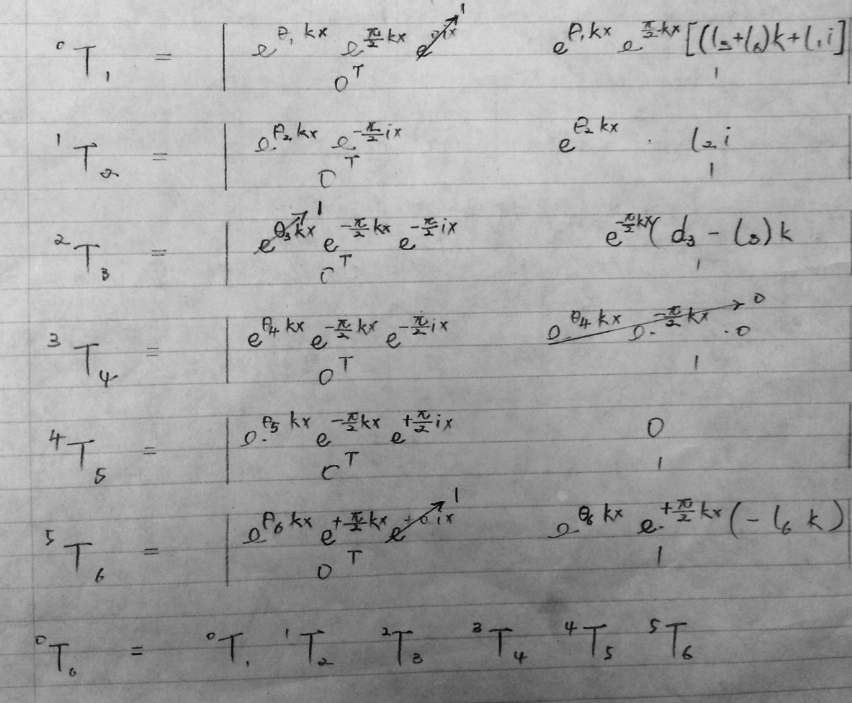 ⁰T₁ = | e^{θ₁kx} e^{π/2 kx} e^{0ix}→1 e^{θ₁kx} e^{π/2 kx} [(l₅+l₆)k+l₁i]
0ᵀ 1
¹T₂ = | e^{θ₂kx} e^{-π/2 ix} e^{θ₂kx} · l₂i
0ᵀ 1
²T₃ = | e^{θ₃kx}→1 e^{-π/2 kx} e^{-π/2 ix} e^{-π/2 kx}(d₃ - l₃)k
0ᵀ 1
³T₄ = | e^{θ₄kx} e^{-π/2 kx} e^{-π/2 ix} e^{θ₄kx} e^{-π/2 kx} ·0→0
0ᵀ 1
⁴T₅ = | e^{θ₅kx} e^{-π/2 kx} e^{+π/2 ix} 0
0ᵀ 1
⁵T₆ = | e^{θ₆kx} e^{+π/2 kx} e^{+0ix}→1 e^{θ₆kx} e^{+π/2 kx}(-l₆k)
0ᵀ 1
⁰T₆ = ⁰T₁ ¹T₂ ²T₃ ³T₄ ⁴T₅ ⁵T₆